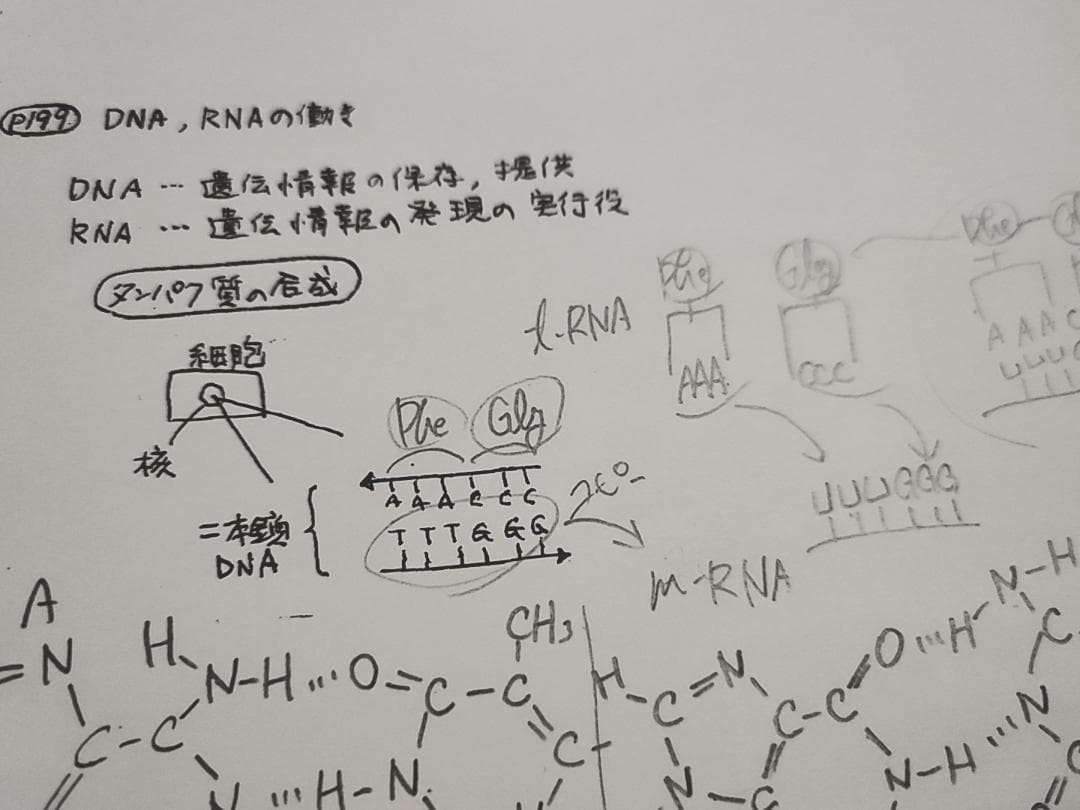 P199 DNA, RNAの働き
DNA … 遺伝情報の保存, 提供
RNA … 遺伝情報の発現の実行役
タンパク質の合成
細胞
核
二本鎖
DNA
Phe Gly
A A A C C C
T T T G G G
t-RNA
Phe Gly
AAA CCC
Phe
A A A C
U U U G
U U U G G G
m-RNA
A
N
H
N-H…O=C-C
CH3
C-C
C
…H-N
H
C=N
C-C
O…H-N-H
C
N
N-H…N
N
C
C